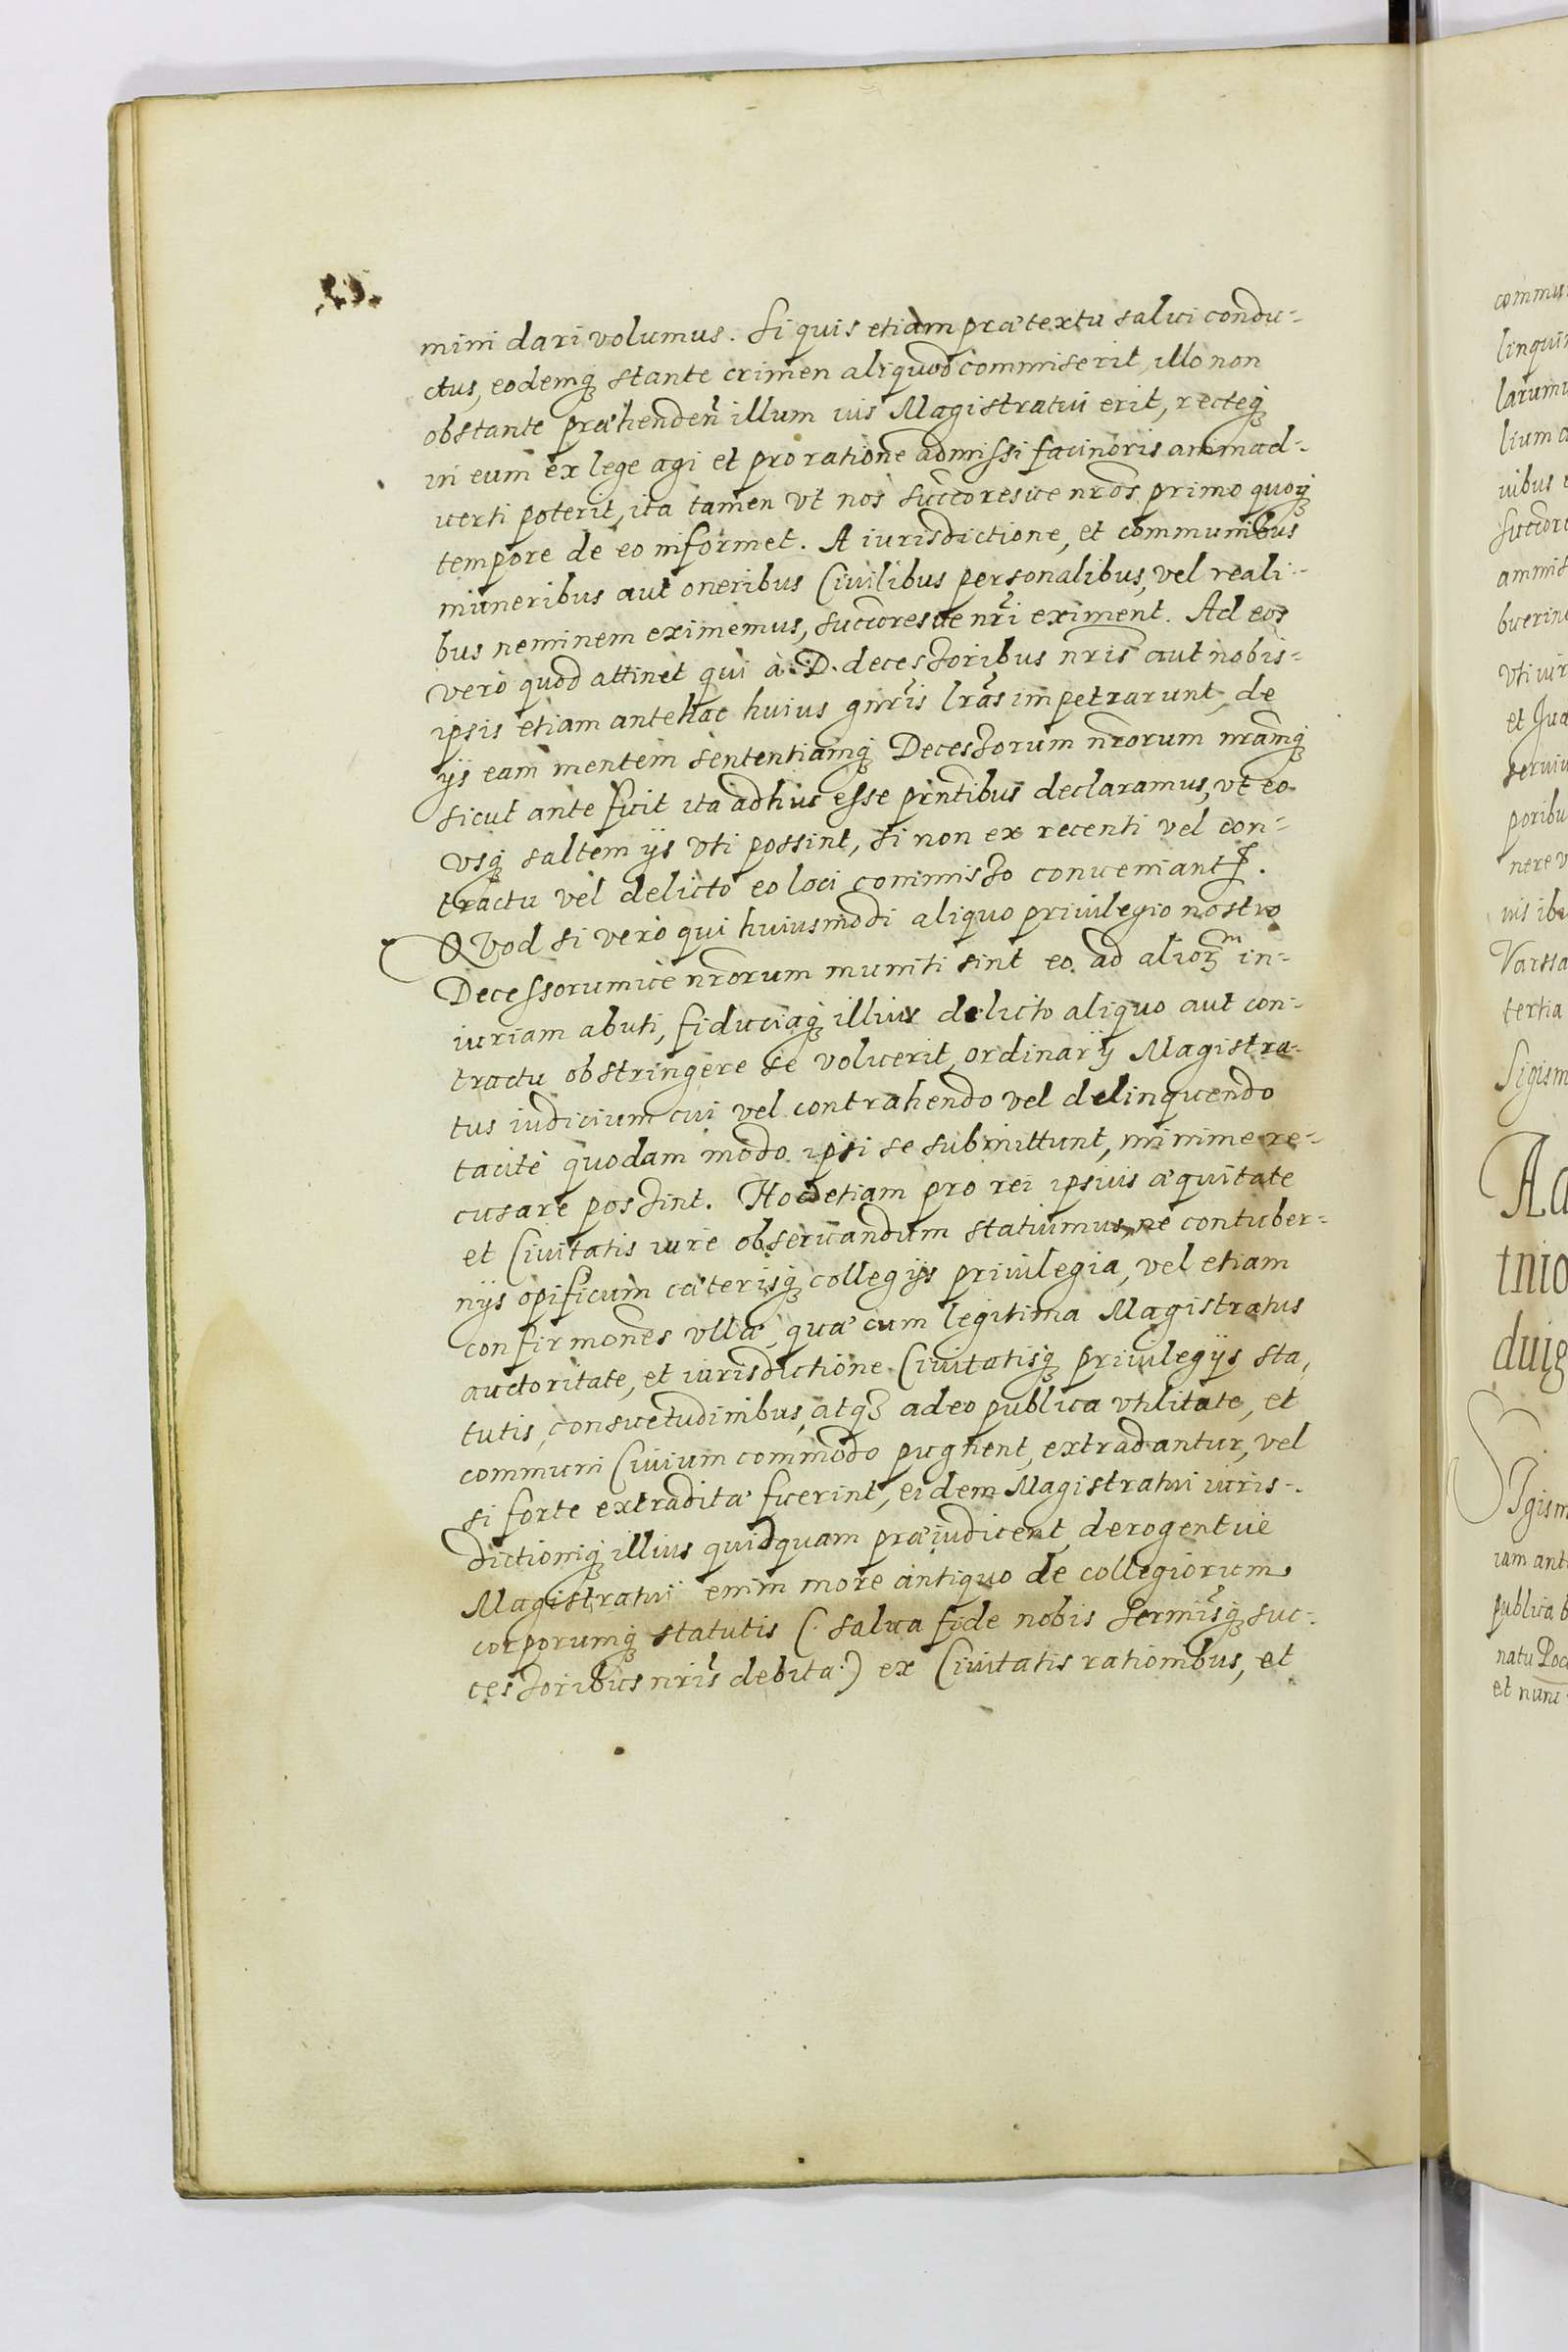 mini dari volumus. Si quis etiam prætextu salui condu-
ctus, eodemq́ stante crimen aliquod commiserit, illo non
obstante præhenden̄ illum ius Magistratui erit, recteq́
in eum ex lege agi et pro ratione admissi facinoris animad-
uerti poterit, ita tamen vt nos succoresue nr̄os primo quoq́
tempore de eo informet. A iurisdictione, et communibus
muneribus aut oneribus Ciuilibus personalibus, vel reali-
bus neminem eximemus, succoresue nr̄i eximent. Ad eos
vero quod attinet qui à D. decessoribus nr̄is aut nobis-
ipsis etiam antehac huius gnr̄is lr̄as impetrarunt, de
ijs eam mentem sententiamq́ Decessorum nr̄orum nr̄amq́
sicut ante fuit ita adhuc esse prn̄tibus declaramus, vt eo
vsq́ saltem ijs vti possint, si non ex recenti vel con-
tractu vel delicto eo loci commisso conueniant.
QVod si verò qui huiusmodi aliquo priuilegio nostro
Decessorumue nr̄orum muniti sint eo ad alior̄m in-
iuriam abuti, fiduciaq́ illius delicto aliquo aut con-
tractu obstringere se voluerit, ordinarij Magistra-
tus iudicium cui vel contrahendo vel delinquendo
tacitè quodam modo ipsi se submittunt, minime re-
cusare possint. Hoc etiam pro rei ipsius æquitate
et Ciuitatis iure obseruandum statuimus, ne contuber-
nijs opificum cæterisq́ collegijs priuilegia, vel etiam
confirmones vllæ, quæ cum legitima Magistratus
auctoritate, et iurisdictione Ciuitatisq́ priuilegijs, sta,
tutis, consuetudinibus, atq3 adeo publica vtilitate, et
communi Ciuium commodo pugnent, extradantur, vel
si forte extraditæ fuerint, eidem Magistratui iuris-
dictioniq́ illius quidquam præiudicent, derogentue
Magistratui enim more antiquo de collegiorum
corporumq́ statutis (: salua fide nobis Sermisq́ suc-
cessoribus nr̄is debita:) ex Ciuitatis rationibus, et
commu
larum
lium
uibus
ammis
buerin
Vti iur
et
seruiu
poribu
nere v
Varsa
tertia
Sigism
Ad
tnio
duig
Sigism
iam ant
publica b
natu
et nunc